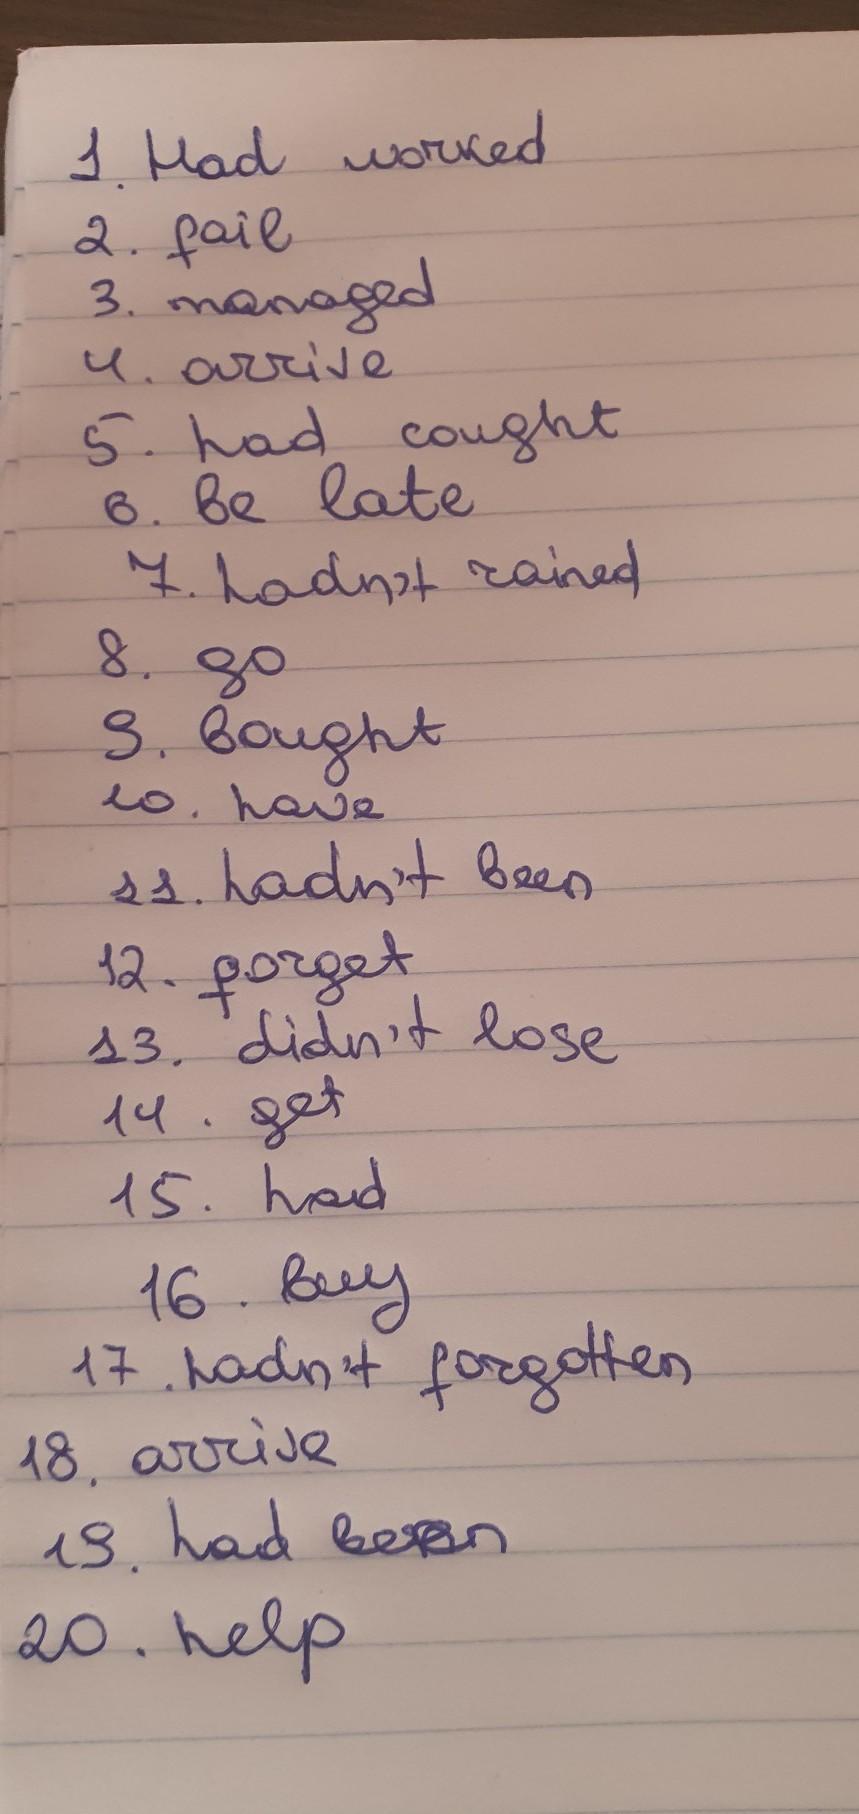 1. Had worked
2. fail
3. managed
4. arrive
5. had cought
6. Be late
7. hadn't rained
8. go
9. Bought
10. have
11. hadn't been
12. forget
13. didn't lose
14. get
15. had
16. Buy
17. hadn't forgotten
18. arrive
19. had been
20. help